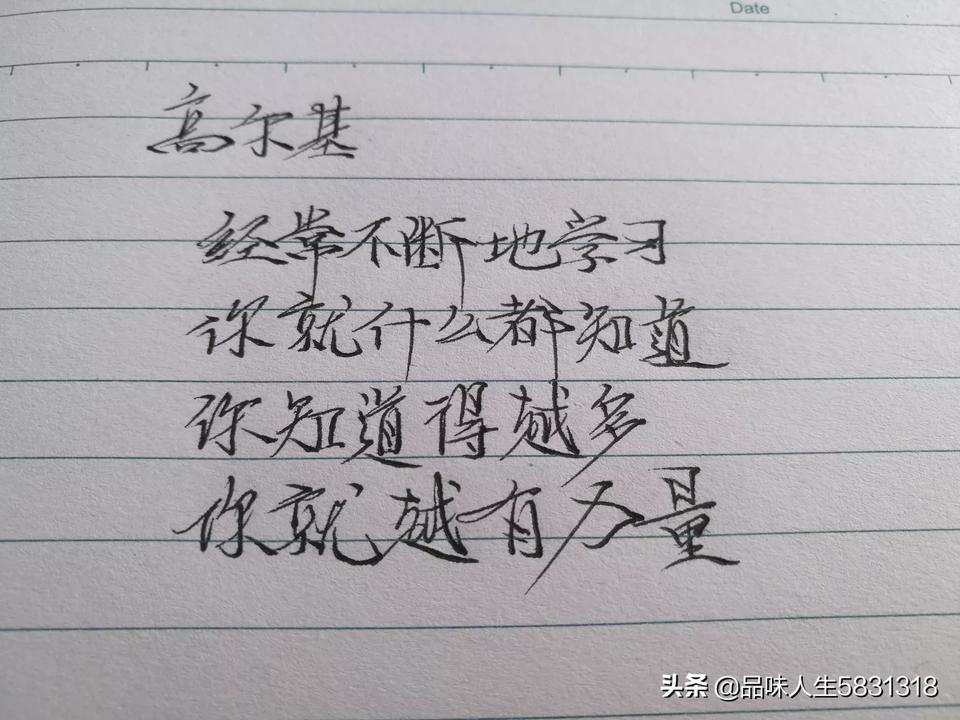 Date
高尔基
经常不断地学习
你就什么都知道
你知道得越多
你就越有力量
头条 @品味人生5831318